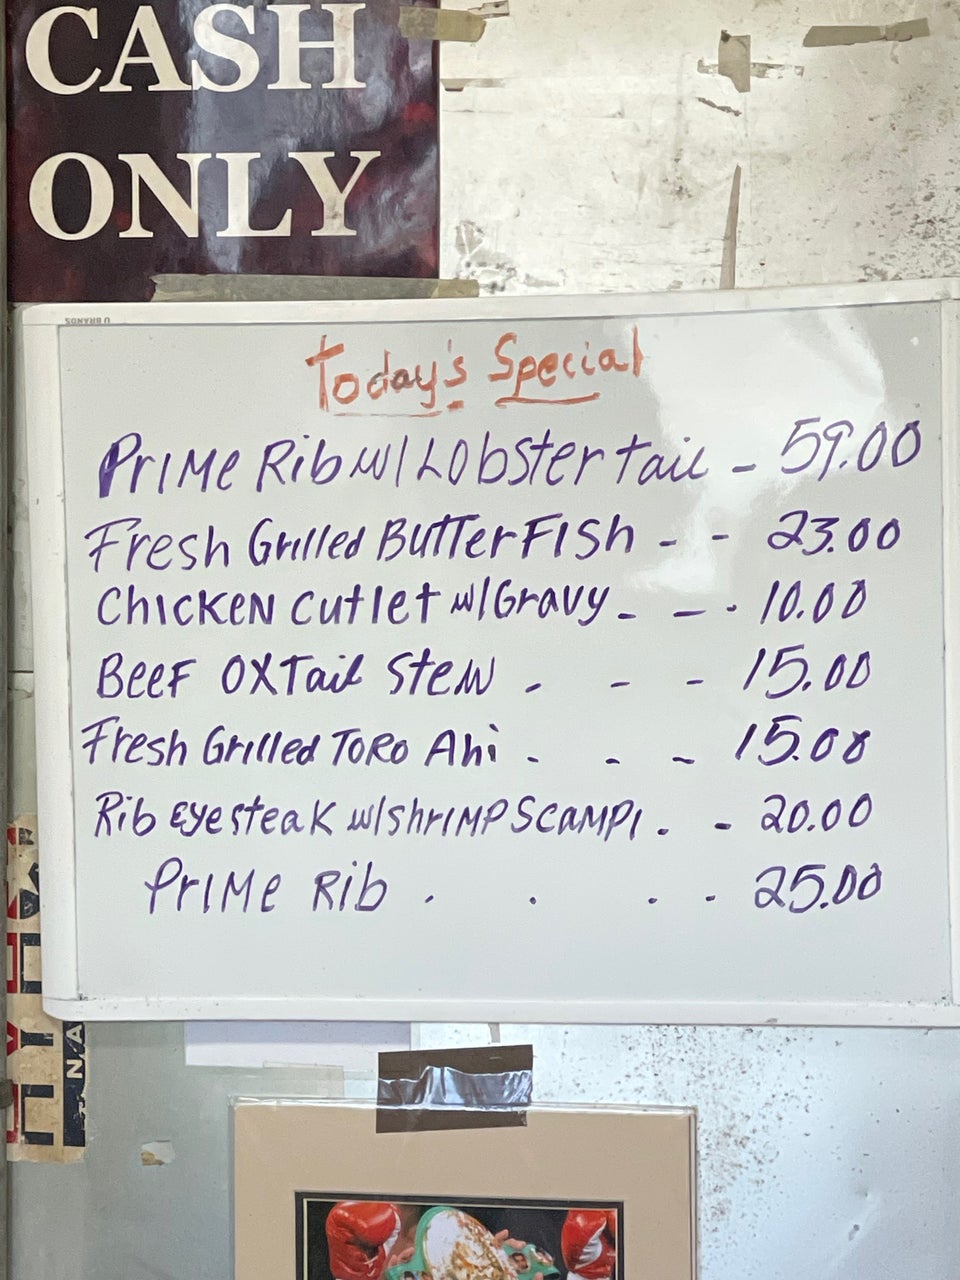 CASH
ONLY
U BRANDS
Today's Special
Prime Rib w/Lobster tail - 59.00
Fresh Grilled ButterFish - - 23.00
Chicken cutlet w/Gravy - - - 10.00
Beef OXTail Stew - - - 15.00
Fresh Grilled Toro Ahi - - - 15.00
Rib Eye steak w/shrimp Scampi . - 20.00
Prime Rib . . . . 25.00